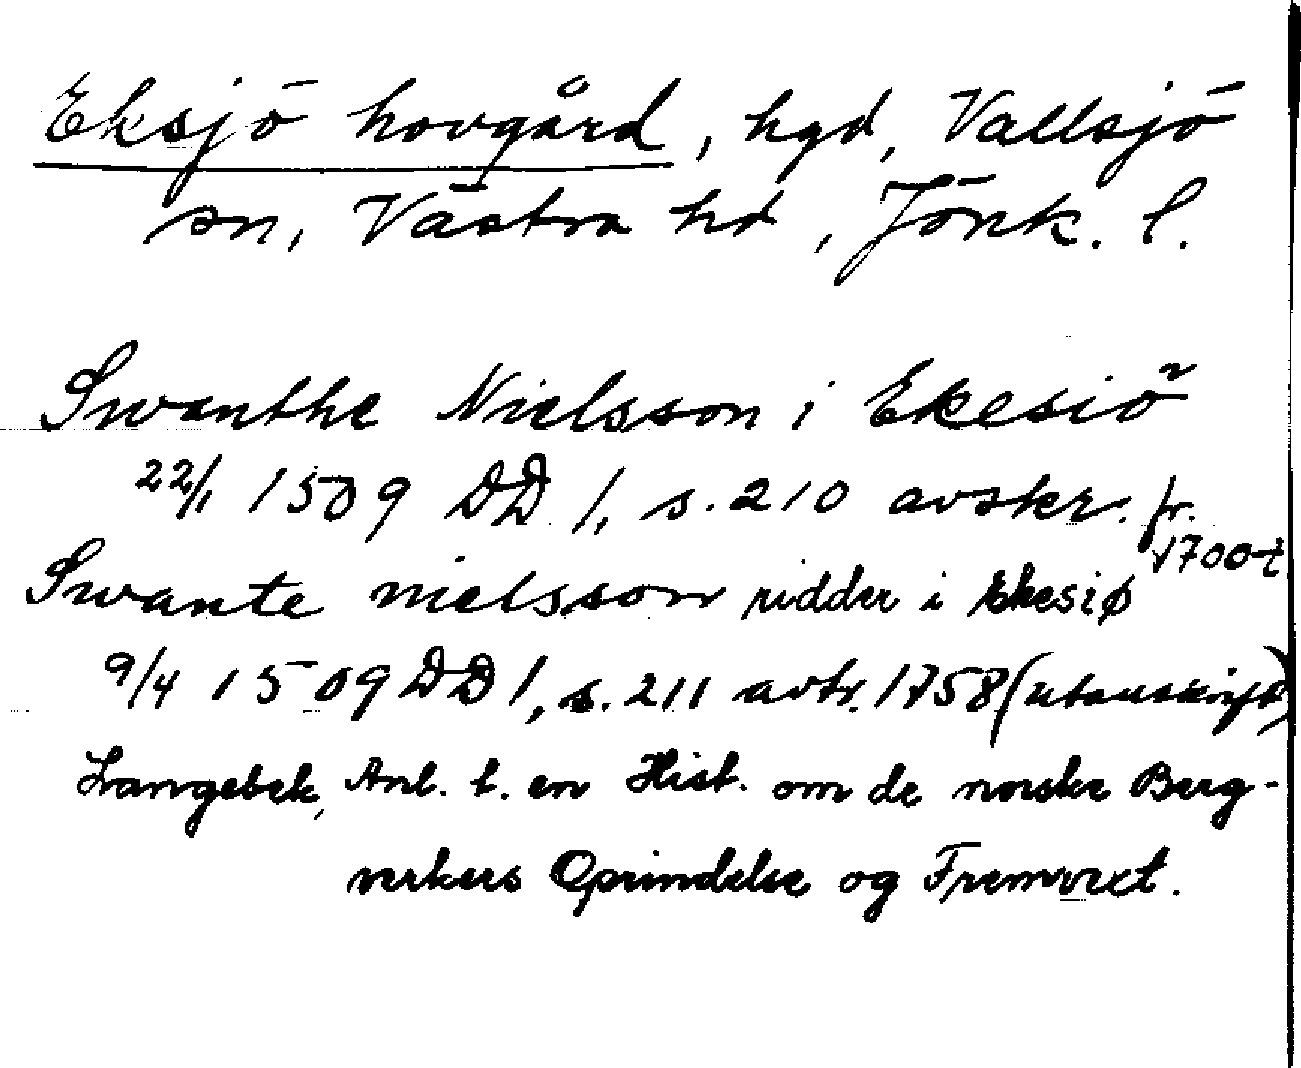 Eksjö hovgård, hgd, Vallsjö
sn, Västra hd, Jönk. l.
Swanthe Nielsson i Ekesiö
22/1 1509 DD 1, s. 210 avskr. fr.
1700-t
Swante nielsson ridder i Ekesiø
9/4 1509 DD 1, s. 211 avtr. 1758 (utanskrift)
Langebek, Anl. t. en Hist. om de norske Berg-
verkers Oprindelse og Fremvext.